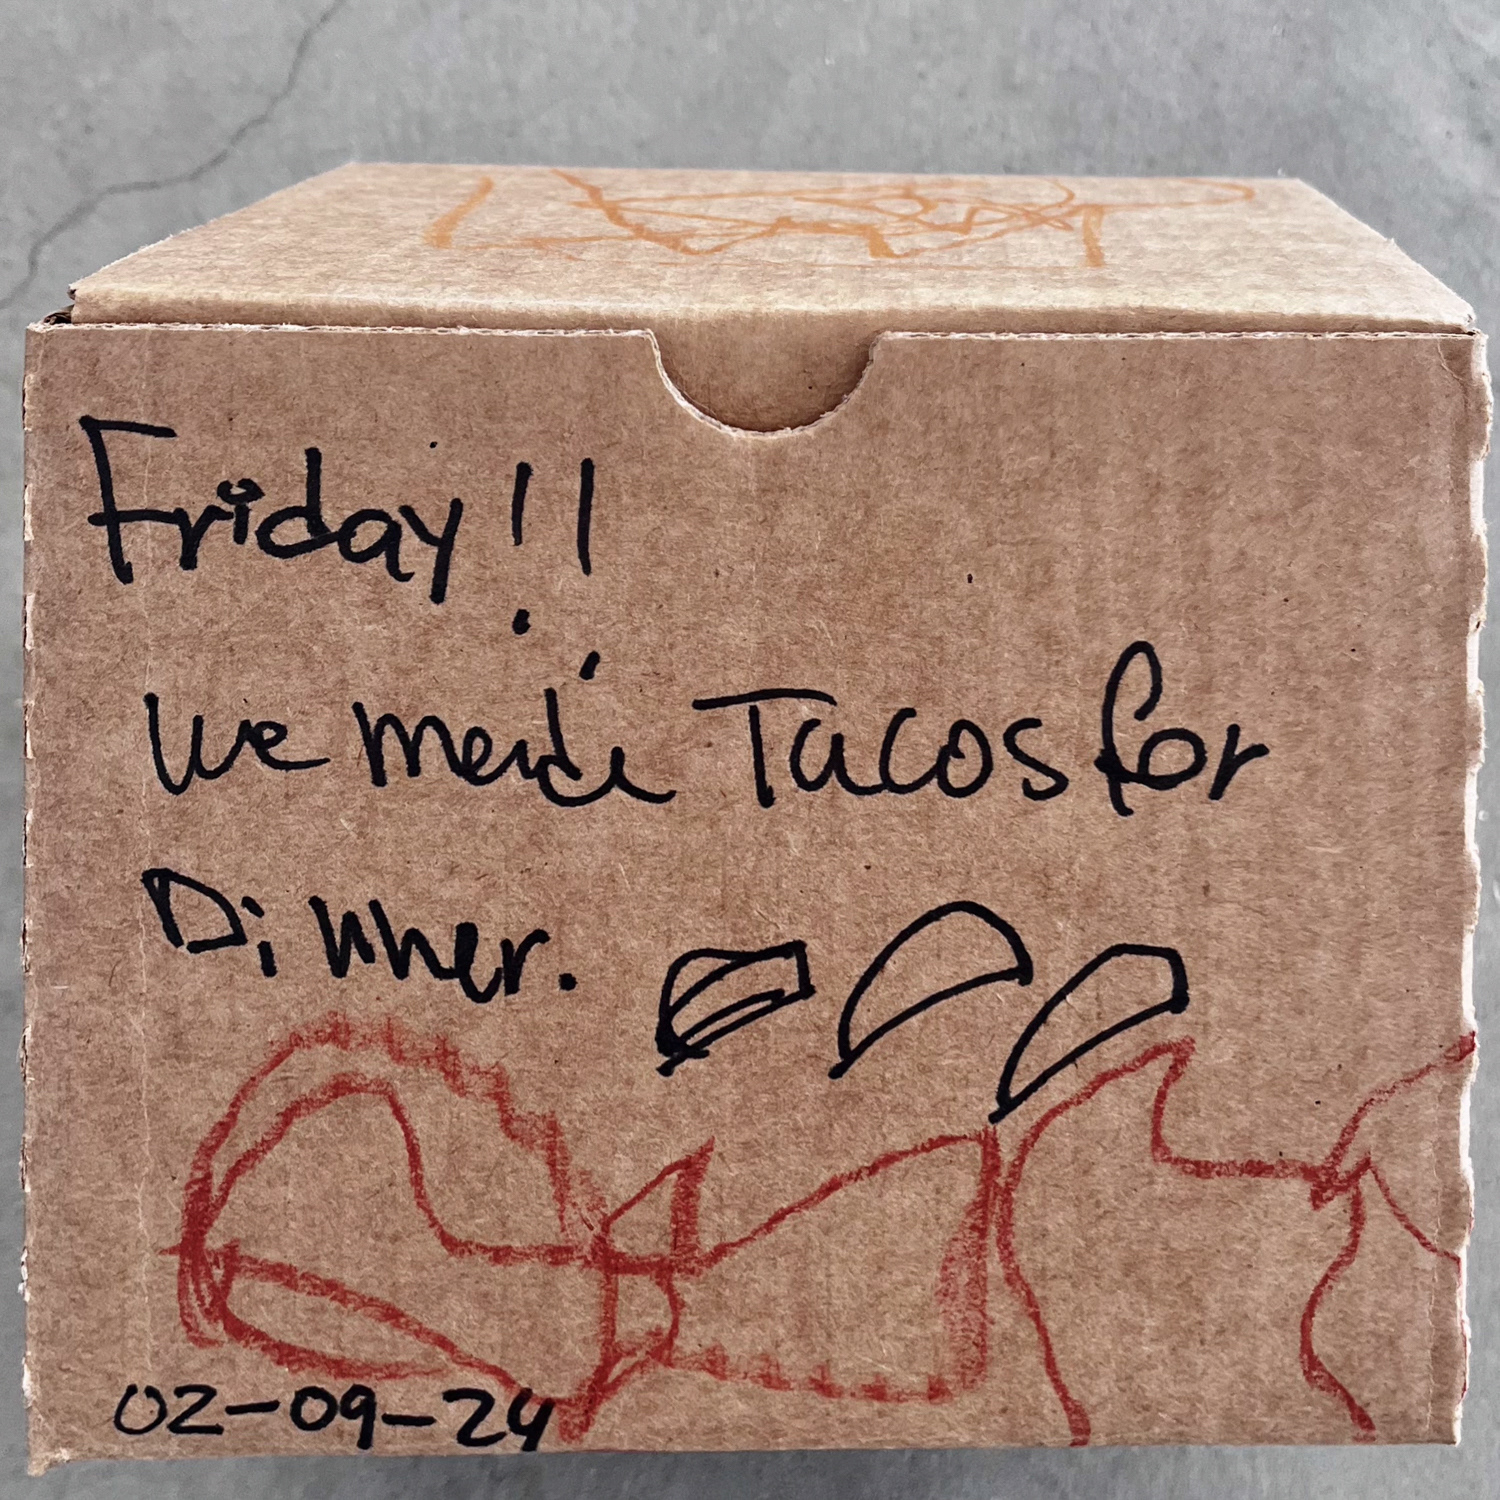 Friday!!
We made Tacos for
Dinner.
02-09-24